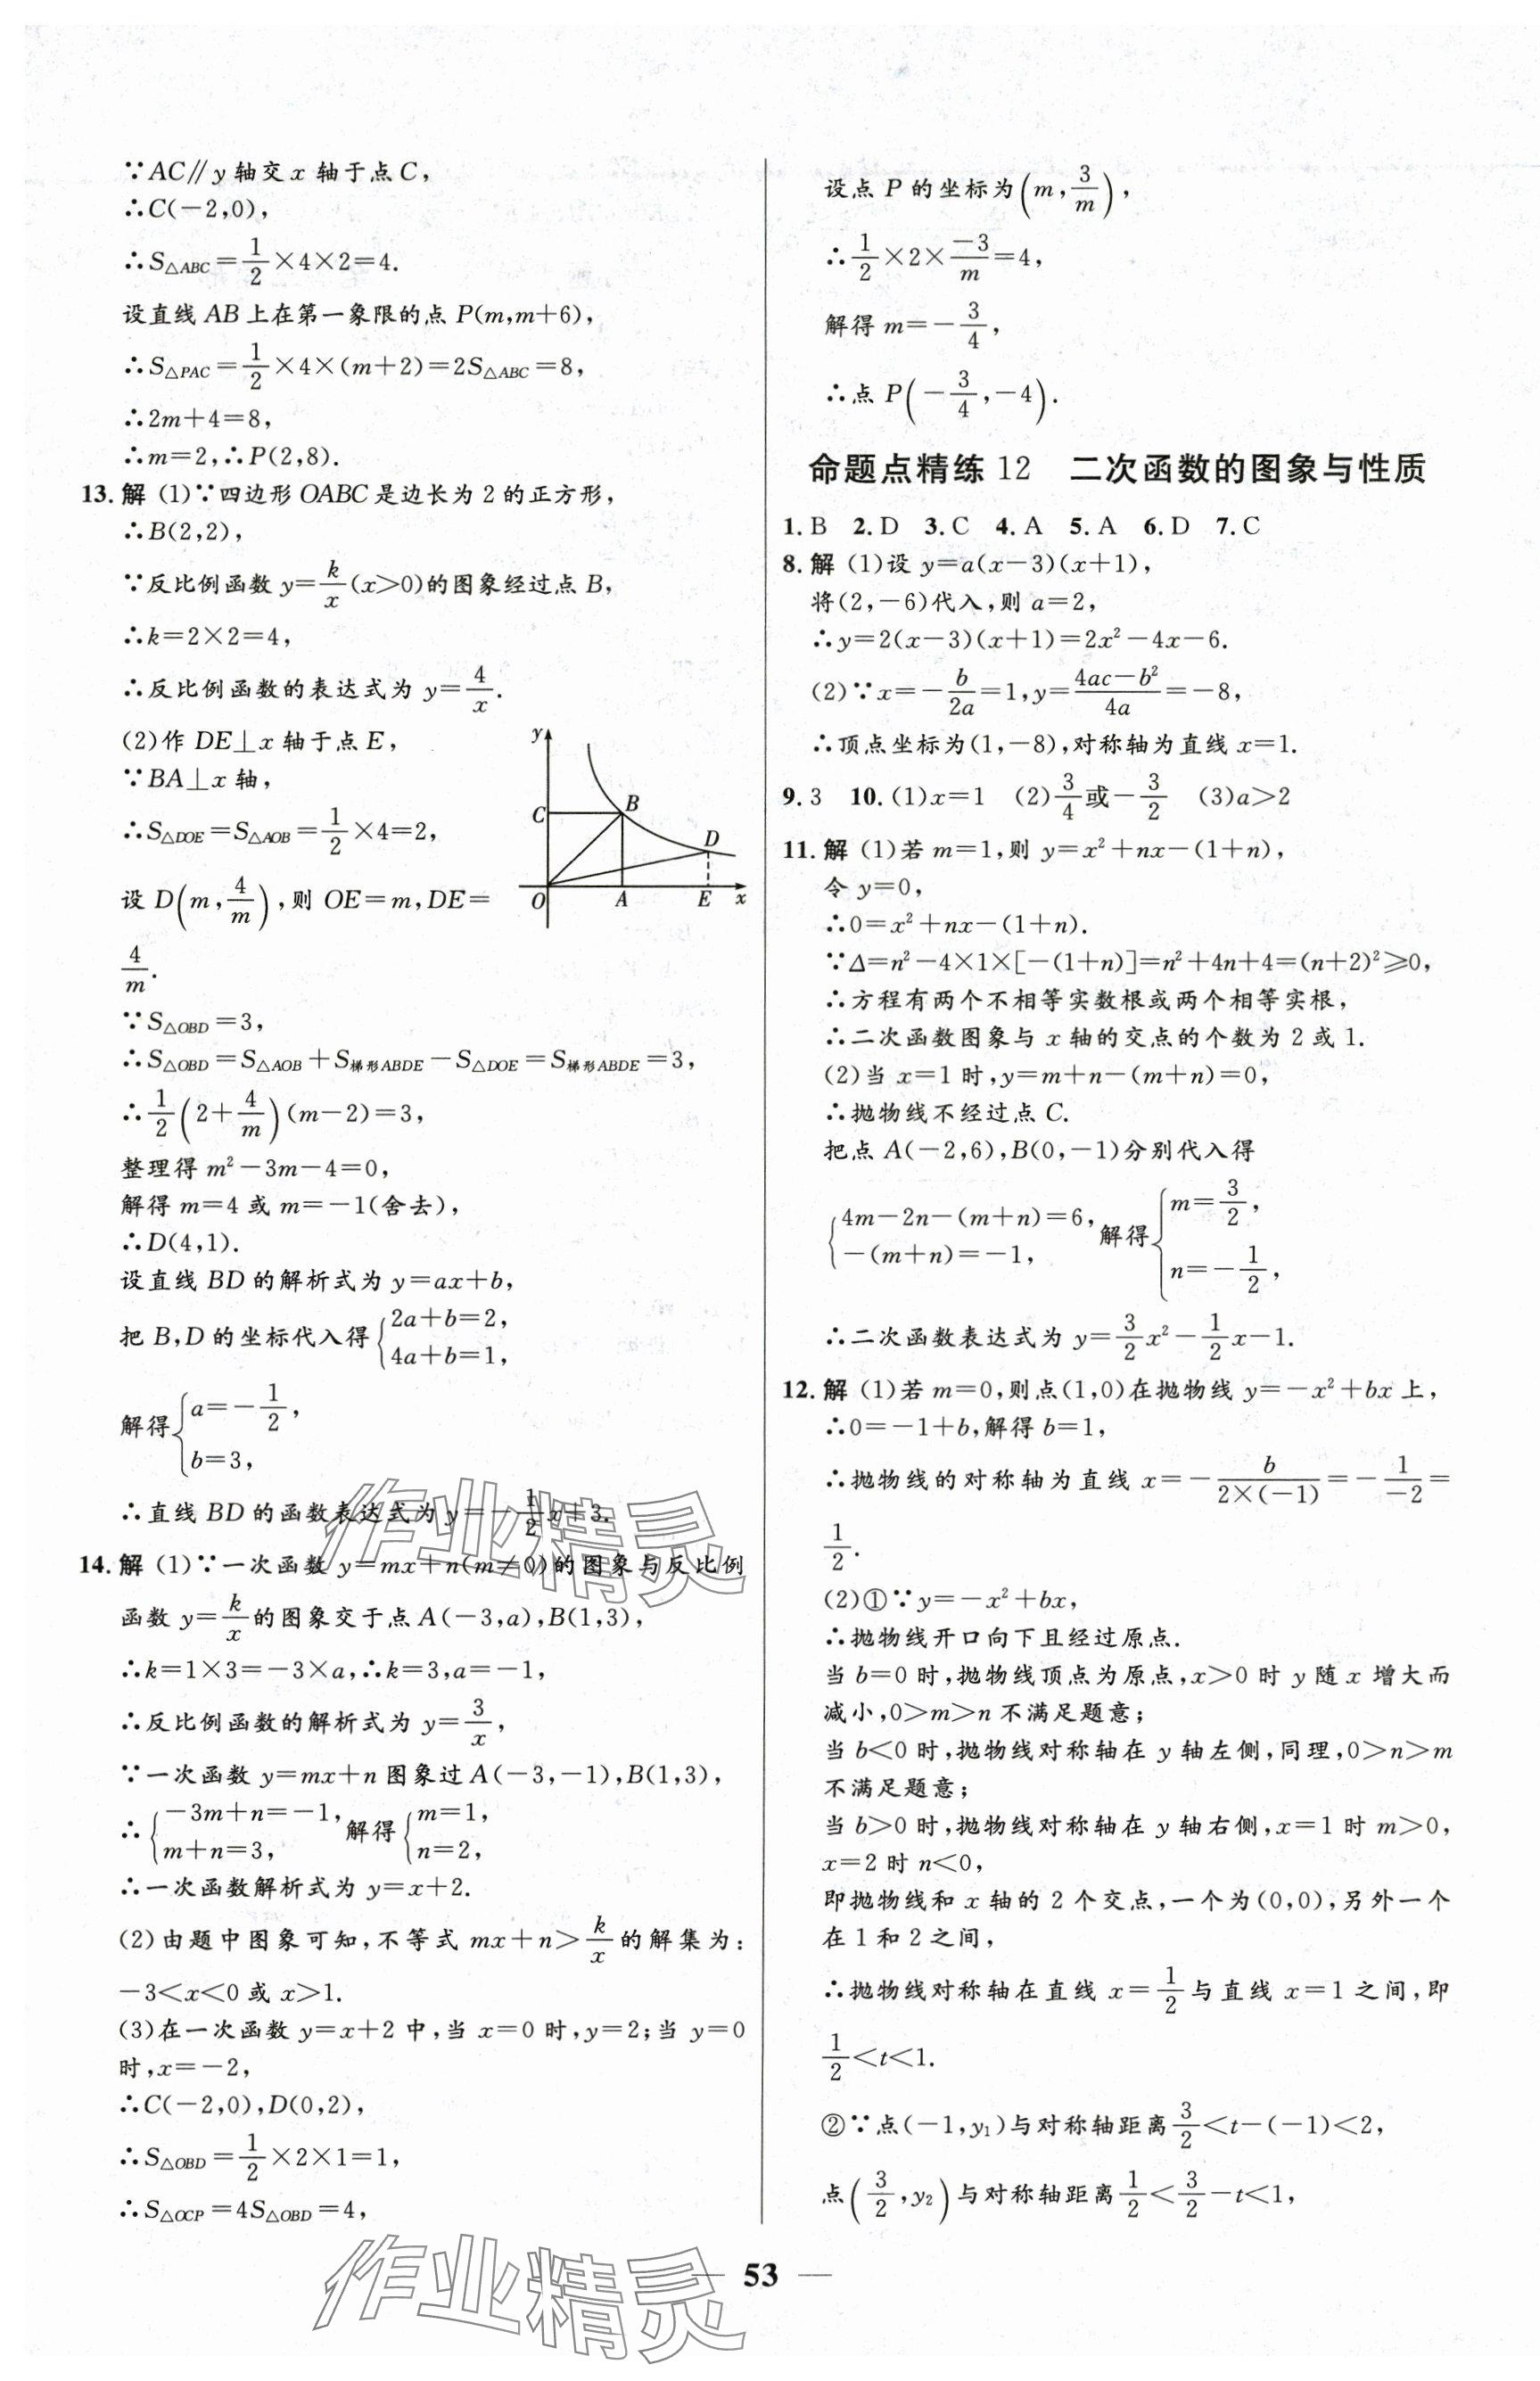 ∵AC∥y轴交x轴于点C，
∴C(−2,0)，
∴S△ABC=1/2×4×2=4.
设直线AB上在第一象限的点P(m,m+6)，
∴S△PAC=1/2×4×(m+2)=2S△ABC=8，
∴2m+4=8，
∴m=2,∴P(2,8).
13.解 (1)∵四边形OABC是边长为2的正方形，
∴B(2,2)，
∵反比例函数y=k/x(x>0)的图象经过点B，
∴k=2×2=4，
∴反比例函数的表达式为y=4/x.
(2)作DE⊥x轴于点E，
∵BA⊥x轴，
∴S△DOE=S△AOB=1/2×4=2，
设D(m,4/m)，则OE=m,DE=
4/m.
y
C
B
D
O
A
E
x
∵S△OBD=3，
∴S△OBD=S△AOB+S梯形ABDE−S△DOE=S梯形ABDE=3，
∴1/2(2+4/m)(m−2)=3，
整理得m²−3m−4=0，
解得m=4或m=−1(舍去)，
∴D(4,1).
设直线BD的解析式为y=ax+b，
把B,D的坐标代入得{2a+b=2，
4a+b=1，
解得{a=−1/2，
b=3，
∴直线BD的函数表达式为y=−1/2x+3.
14.解 (1)∵一次函数y=mx+n(m≠0)的图象与反比例
函数y=k/x的图象交于点A(−3,a),B(1,3)，
∴k=1×3=−3×a,∴k=3,a=−1，
∴反比例函数的解析式为y=3/x，
∵一次函数y=mx+n图象过A(−3,−1),B(1,3)，
∴{−3m+n=−1，m+n=3，解得{m=1，n=2，
∴一次函数解析式为y=x+2.
(2)由题中图象可知，不等式mx+n>k/x的解集为：
−3<x<0或x>1.
(3)在一次函数y=x+2中，当x=0时,y=2；当y=0
时,x=−2，
∴C(−2,0),D(0,2)，
∴S△OBD=1/2×2×1=1，
∴S△OCP=4S△OBD=4，
设点P的坐标为(m,3/m)，
∴1/2×2×−3/m=4，
解得m=−3/4，
∴点P(−3/4,−4).
命题点精练12 二次函数的图象与性质
1.B 2.D 3.C 4.A 5.A 6.D 7.C
8.解 (1)设y=a(x−3)(x+1)，
将(2,−6)代入，则a=2，
∴y=2(x−3)(x+1)=2x²−4x−6.
(2)∵x=−b/2a=1,y=(4ac−b²)/4a=−8，
∴顶点坐标为(1,−8)，对称轴为直线x=1.
9.3 10.(1)x=1 (2)3/4或−3/2 (3)a>2
11.解 (1)若m=1，则y=x²+nx−(1+n)，
令y=0，
∴0=x²+nx−(1+n).
∵Δ=n²−4×1×[−(1+n)]=n²+4n+4=(n+2)²⩾0，
∴方程有两个不相等实数根或两个相等实根，
∴二次函数图象与x轴的交点的个数为2或1.
(2)当x=1时,y=m+n−(m+n)=0，
∴抛物线不经过点C.
把点A(−2,6),B(0,−1)分别代入得
{4m−2n−(m+n)=6，−(m+n)=−1，解得{m=3/2，n=−1/2，
∴二次函数表达式为y=3/2x²−1/2x−1.
12.解 (1)若m=0，则点(1,0)在抛物线y=−x²+bx上，
∴0=−1+b，解得b=1，
∴抛物线的对称轴为直线x=−b/(2×(−1))=−1/−2=
1/2.
(2)①∵y=−x²+bx，
∴抛物线开口向下且经过原点.
当b=0时，抛物线顶点为原点,x>0时y随x增大而
减小,0>m>n不满足题意；
当b<0时，抛物线对称轴在y轴左侧，同理,0>n>m
不满足题意；
当b>0时，抛物线对称轴在y轴右侧,x=1时m>0，
x=2时n<0，
即抛物线和x轴的2个交点，一个为(0,0)，另外一个
在1和2之间，
∴抛物线对称轴在直线x=1/2与直线x=1之间，即
1/2<t<1.
②∵点(−1,y₁)与对称轴距离3/2<t−(−1)<2，
点(3/2,y₂)与对称轴距离1/2<3/2−t<1，
— 53 —
作业精灵
作业精灵